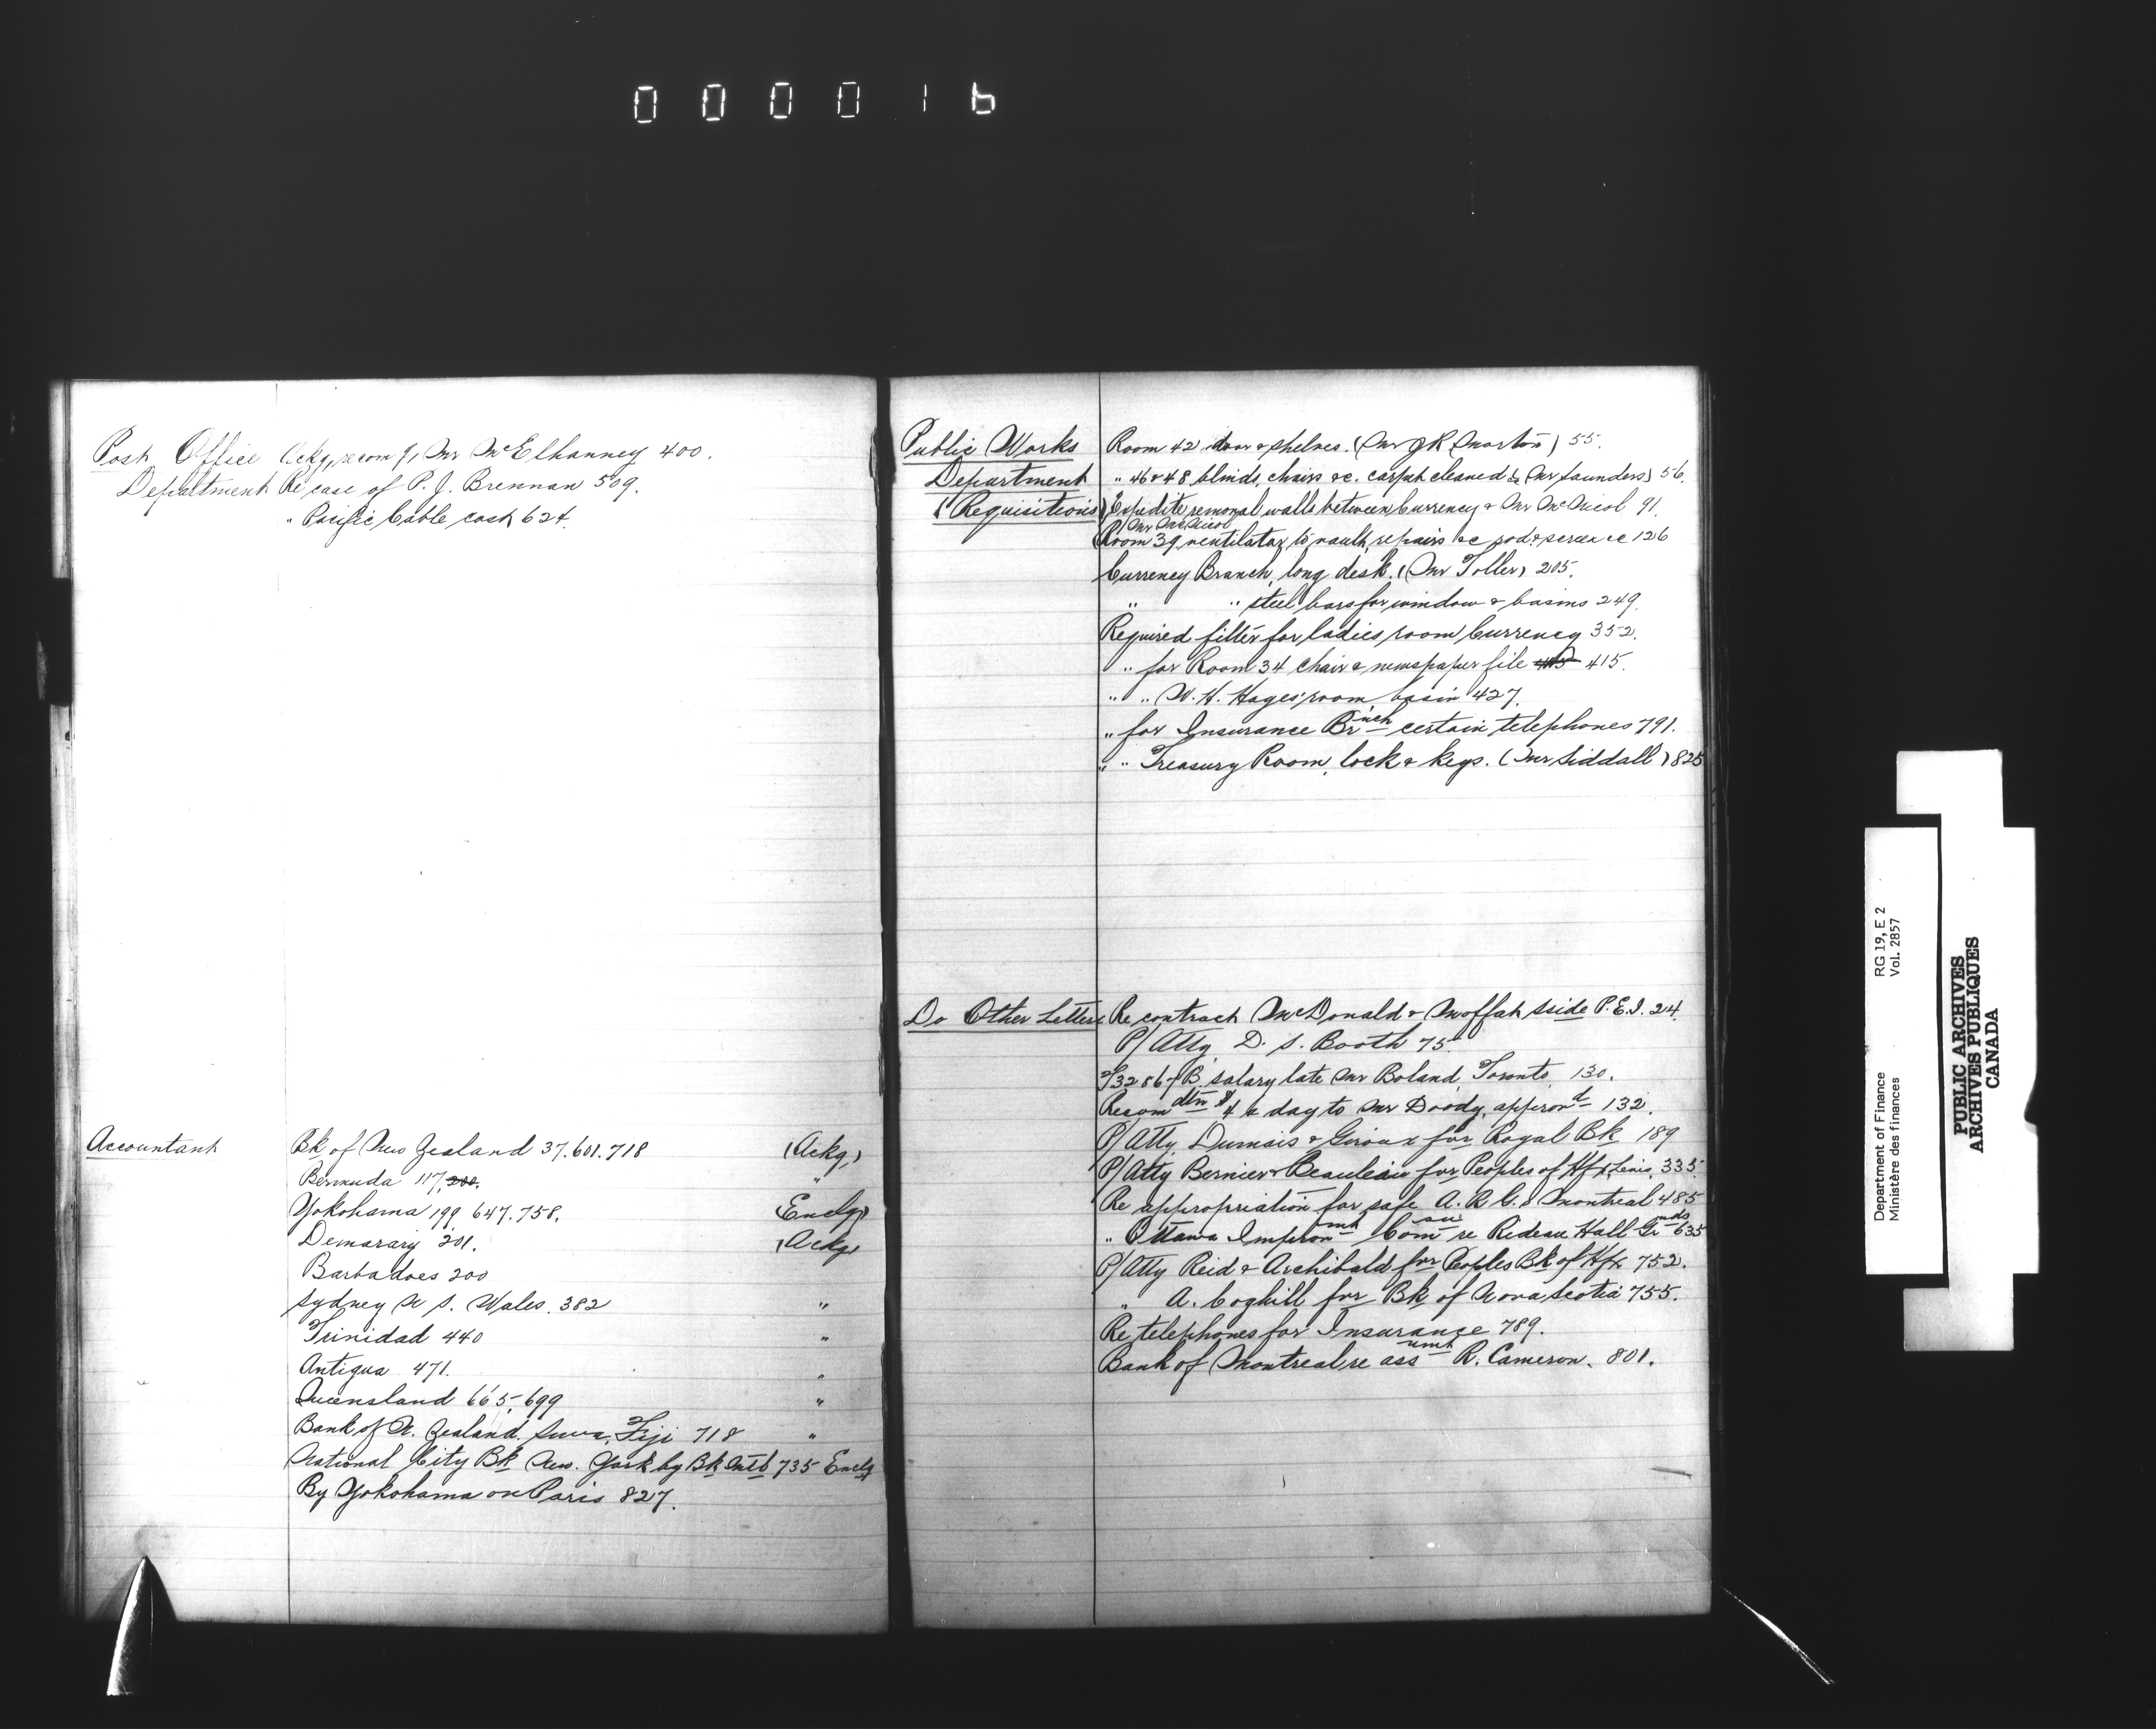 000016
Post Office Ackg, recom of, Mr McElhanney 400.
Department Re case of P. J. Brennan 509.
" Pacific Cable cash 624.
Accountant Bk of New Zealand 37. 601. 718 (Ackg)
Bermuda 117, 200. "
Yokohama 199, 647. 758. (Enclg)
Demarary 201. (Ackg)
Barbadoes 200
Sydney N S. Wales. 382 "
Trinidad 440 "
Antigua 471. "
Queensland 665, 699 "
Bank of N. Zealand, Suva, Fiji 718 "
National City Bk New York by Bk Mtl 735 Enclg
By Yokohama on Paris 827.
Public Works Room 42 door & shelves. (Mr J R Morton) 55.
Department " 46 & 48 blinds, chairs &c. carpet cleaned & (Mr Saunders) 56.
(Requisitions) Expedite removal walls between Currency & Mr McNicol 91.
Mr McNicol
Room 39 ventilator to vault, repairs &c rod & screen &c 126
Currency Branch, long desk. (Mr Toller) 205.
" " steel bars for window & basins 249.
Required filter for ladies room Currency 352.
" for Room 34 chair & newspaper file 415.
" " W. H. Hayes' room, basin 427.
" for Insurance Brnch certain telephones 791.
" " Treasury Room, lock & keys. (Mr Siddall) 825
Do Other Letters Re contract McDonald & Moffat Sside P.E.I. 24.
P/Atty D. S. Booth 75.
732867 B. salary late Mr Boland, Toronto, 130.
Recomdtn $4 a day to Mr Doody, approvd 132.
P/Atty. Dumais & Giroux for Royal Bk 189
P/Atty Bernier & Beaulieu for Peoples of Hfx, Levis, 335.
Re appropriation for safe A. R. G. & Montreal 485
" Ottawa Improvmt Comsn re Rideau Hall Grnds 635
P/Atty Reid & Archibald for Peoples Bk of Hfx 752.
" A. Coghill for Bk of Nova Scotia 755.
Re telephones for Insurance 789.
Bank of Montreal re assnmt R. Cameron. 801.
Department of Finance RG 19, E 2
Ministère des finances Vol. 2857
PUBLIC ARCHIVES
ARCHIVES PUBLIQUES
CANADA